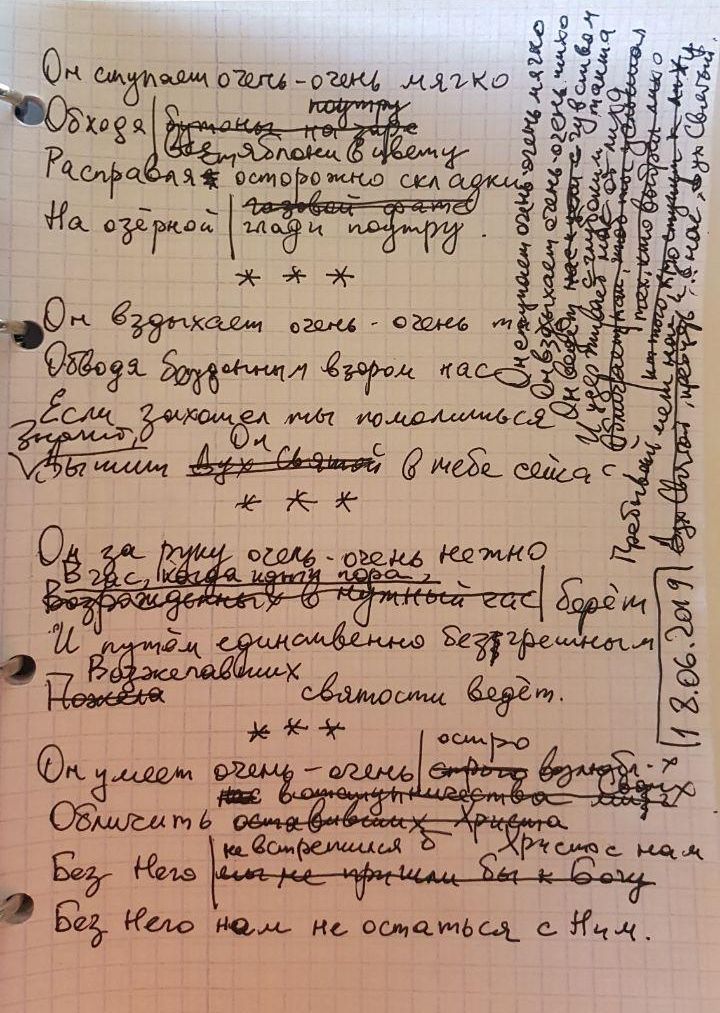 Он ступает очень-очень мягко
поутру
Обходя бутоны на заре
все яблони в цвету
Расправляя осторожно складки
газовой фате
На озёрной глади поутру.
* * *
Он вздыхает очень-очень
Обводя бездонным взором нас
Если захотел ты помолиться
Значит, Он
Дух Святой в тебе сейчас
* * *
Он за руку очень-очень нежно
В час, когда идти пора,
Возрожденных в нужный час берёт
И путём единственно безгрешным
Возжелавших
Пожела святости ведёт.
* * *
остро
Он умеет очень-очень строго
нас в отступничестве
Обличить оставивших Христа
не встретился б Христос нам
Без Него мы не пришли бы к Богу
Без Него нам не остаться с Ним.
Он ступает очень-очень мягко
Он вздыхает очень-очень тихо
Он ведёт нас с чувством
с глубоким такта
И удерживает нас от лиха
Облегчает нам, чтоб ты услышал
тех, кто выбрал
Пребывай
Дух Святой, в нас, Дух Святый.
18.06.2019